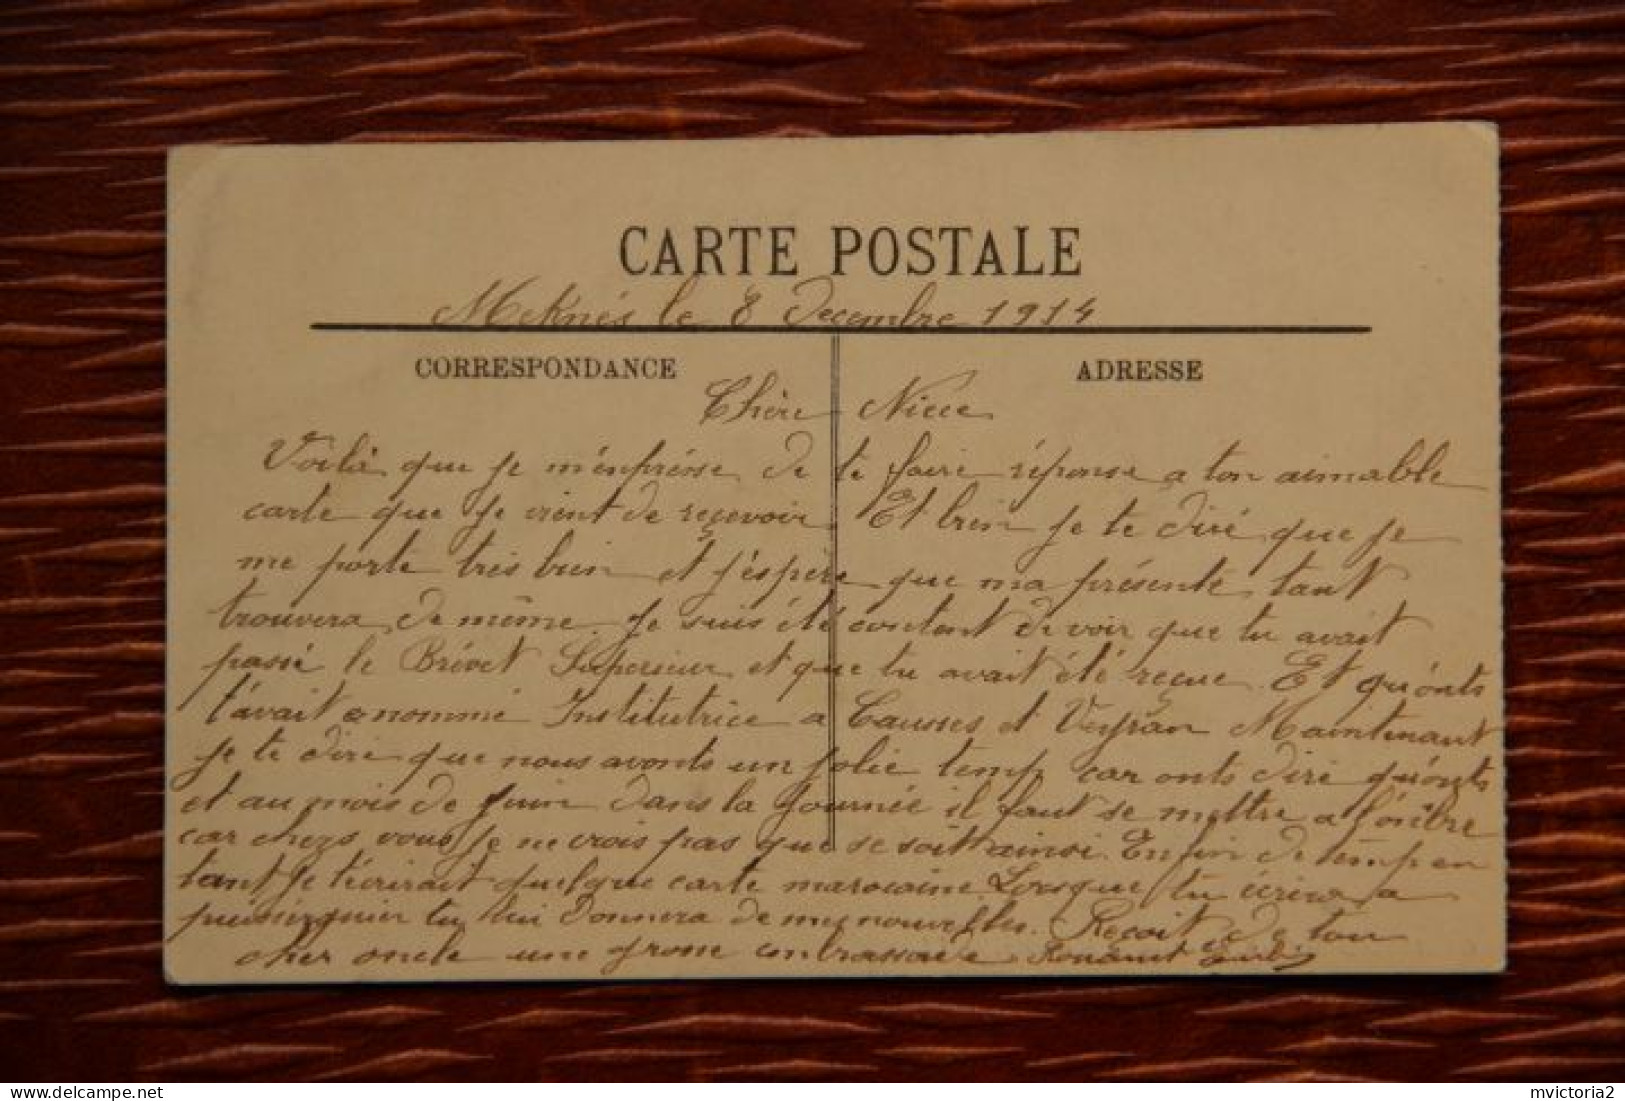 CARTE POSTALE
Meknés le 8 Decembre 1914
CORRESPONDANCE
ADRESSE
Chère Niece
Voilà que je m'enprésse de te faire réponse a ton aimable
carte que je vient de reçevoir. Et bien je te diré que je
me porte très bien et j'éspère que ma présente tant
trouvera de même. Je suis été contant de voir que tu avait
passé le Brévet Superieur et que tu avait été reçue. Et qu'onts
t'avait nommé Institutrice a Causses et Veyran Maintenant
je te diré que nous avonts un jolie temp car onts diré qu'onts
et au mois de juin dans la journée il faut se mettre a l'ombre
car chezs vous je ne crois pas que se soit ainsi. Enfin de temp en
tant je t'écrirait quelque carte marocaine. Lorsque tu écrira a
tu lui donnera de mes nouvelles. Reçoit de ton
cher oncle une grosse embrassade Rouanet
mvictoria2